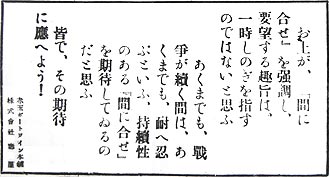 お上が、『間に
合せ』を强調し、
要望する趣旨は、
一時しのぎを指す
のではないと思ふ
あくまでも、戰
爭が續く間は、あ
くまでも、耐へ忍
ぶといふ、持續性
のある『間に合せ』
を期待してゐるの
だと思ふ
皆で、その期待
に應へよう!
赤玉ポートワイン本舗
株式會社 壽屋